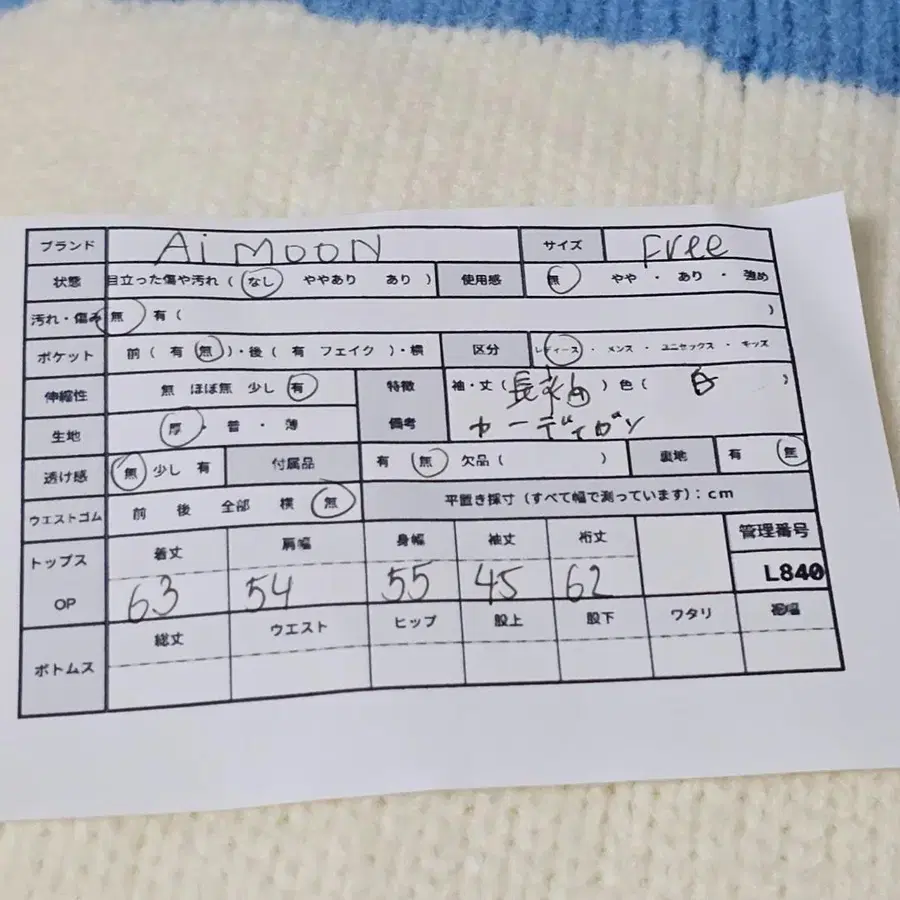 ブランド Ai MOON サイズ Free
状態 目立った傷や汚れ ( なし ややあり あり ) 使用感 無 やや ・ あり ・ 強め
汚れ・傷み 無 有 ( )
ポケット 前 ( 有 無 )・後 ( 有 フェイク )・横 区分 レディース ・ メンズ ・ ユニセックス ・ キッズ
伸縮性 無 ほぼ無 少し 有 特徴 袖・丈 ( 長袖 ) 色 ( 白 )
生地 厚 ・ 普 ・ 薄 備考 カーディガン
透け感 無 少し 有 付属品 有 無 欠品 ( ) 裏地 有 無
ウエストゴム 前 後 全部 横 無 平置き採寸 (すべて幅で測っています) : cm
トップス OP 着丈 肩幅 身幅 袖丈 裄丈 管理番号
63 54 55 45 62 L840
ボトムス 総丈 ウエスト ヒップ 股上 股下 ワタリ